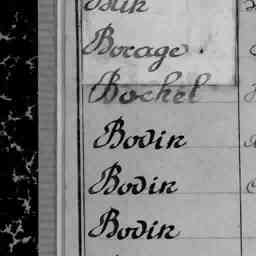 Bocage.
Bochel
Bodin
Bodin
Bodin